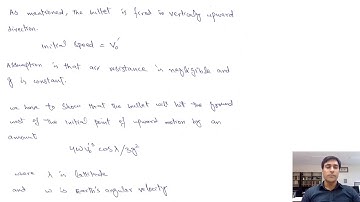 As mentioned, the bullet is fired in vertically upward
direction.
initial speed = V₀'
Assumption is that air resistance in negligible and
g is constant.
we have to show that the bullet will hit the ground
west of the initial point of upward motion by an
amount
4ωv₀'³ cos λ/3g²
where λ is latitude
and ω is Earth's angular velocity